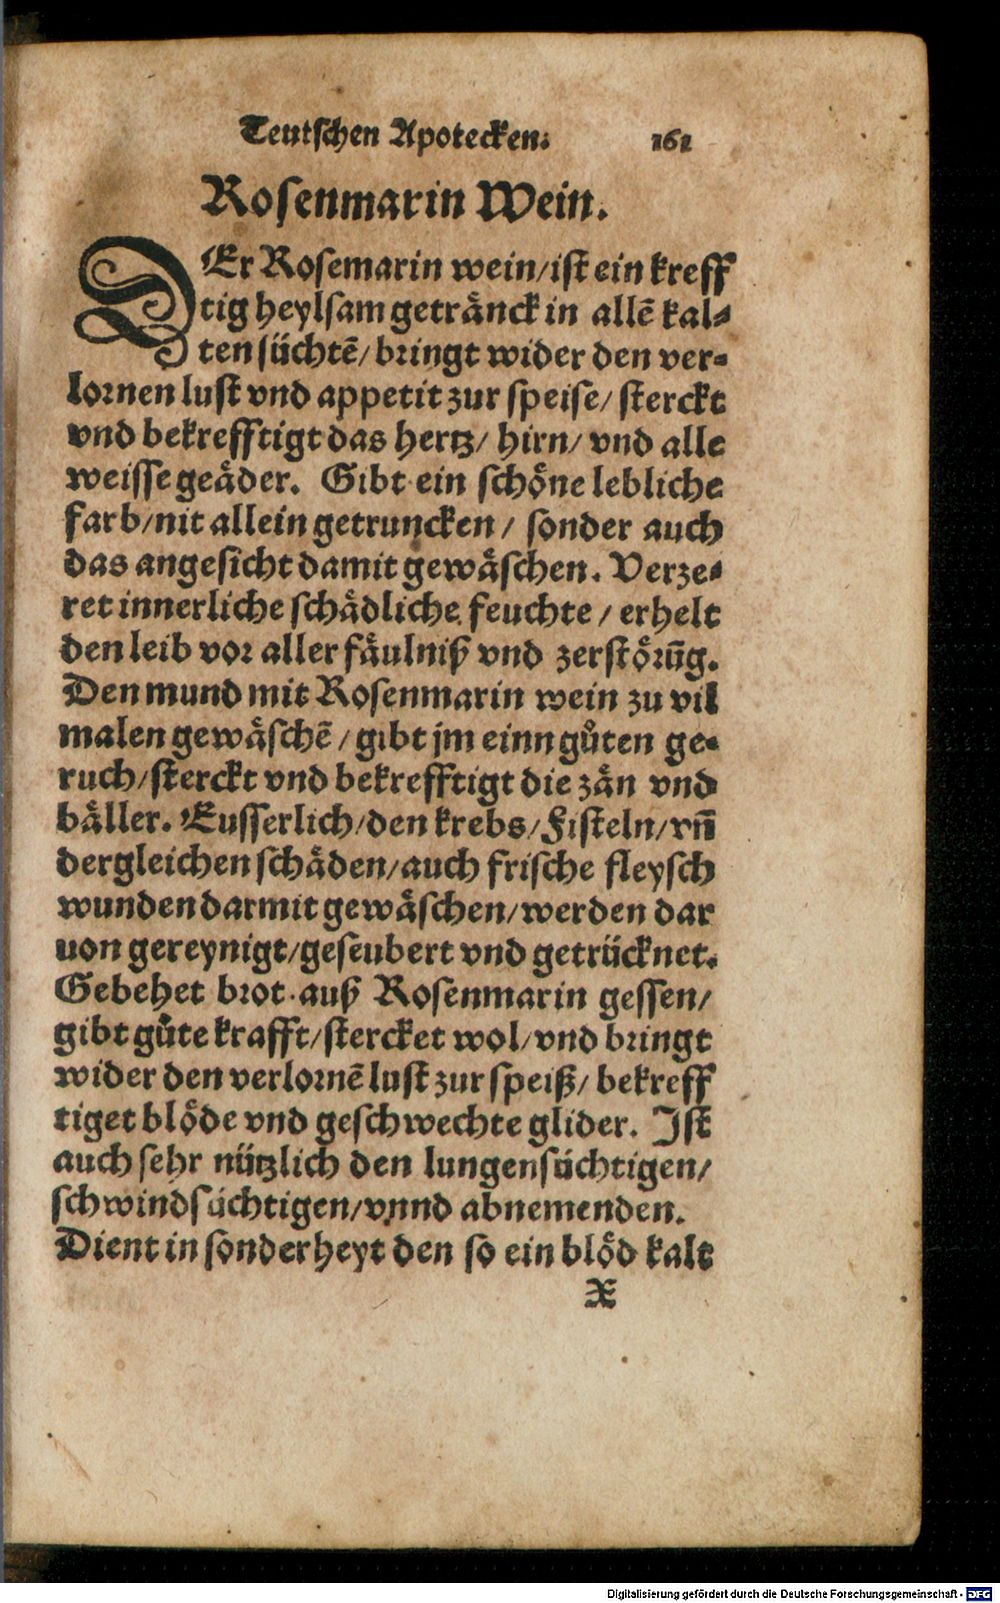 Teutschen Apotecken. 161
Rosenmarin Wein.
DEr Rosemarin wein/ist ein kreff
tig heylsam getränck in allē kal-
ten süchtē/ bringt wider den ver-
lornen lust vnd appetit zur speise/ sterckt
vnd bekrefftigt das hertz/ hirn/ vnd alle
weisse geäder. Gibt ein schöne lebliche
farb/nit allein getruncken/ sonder auch
das angesicht damit gewäschen. Verze-
ret innerliche schädliche feuchte/ erhelt
den leib vor aller fäulniß vnd zerstörūg.
Den mund mit Rosenmarin wein zu vil
malen gewäschē/gibt jm einn gůten ge-
ruch/sterckt vnd bekrefftigt die zän vnd
bäller. Eusserlich/den krebs/Fisteln/vn̄
dergleichen schäden/auch frische fleysch
wunden darmit gewäschen/werden dar
uon gereynigt/geseubert vnd getrücknet.
Gebehet brot auß Rosenmarin gessen/
gibt gůte krafft/stercket wol/vnd bringt
wider den verlornē lust zur speiß/ bekreff
tiget blöde vnd geschwechte glider. Ist
auch sehr nützlich den lungensüchtigen/
schwindsüchtigen/vnnd abnemenden.
Dient in sonderheyt den so ein blöd kalt
X
Digitalisierung gefördert durch die Deutsche Forschungsgemeinschaft - DFG